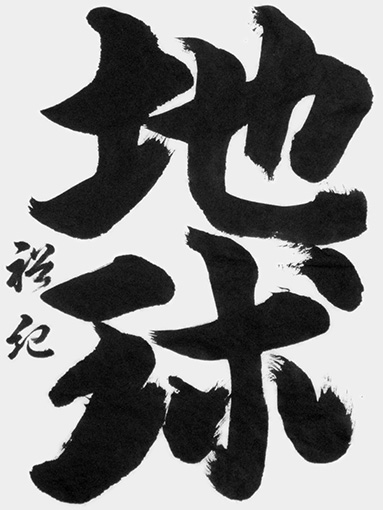 地球
裕紀